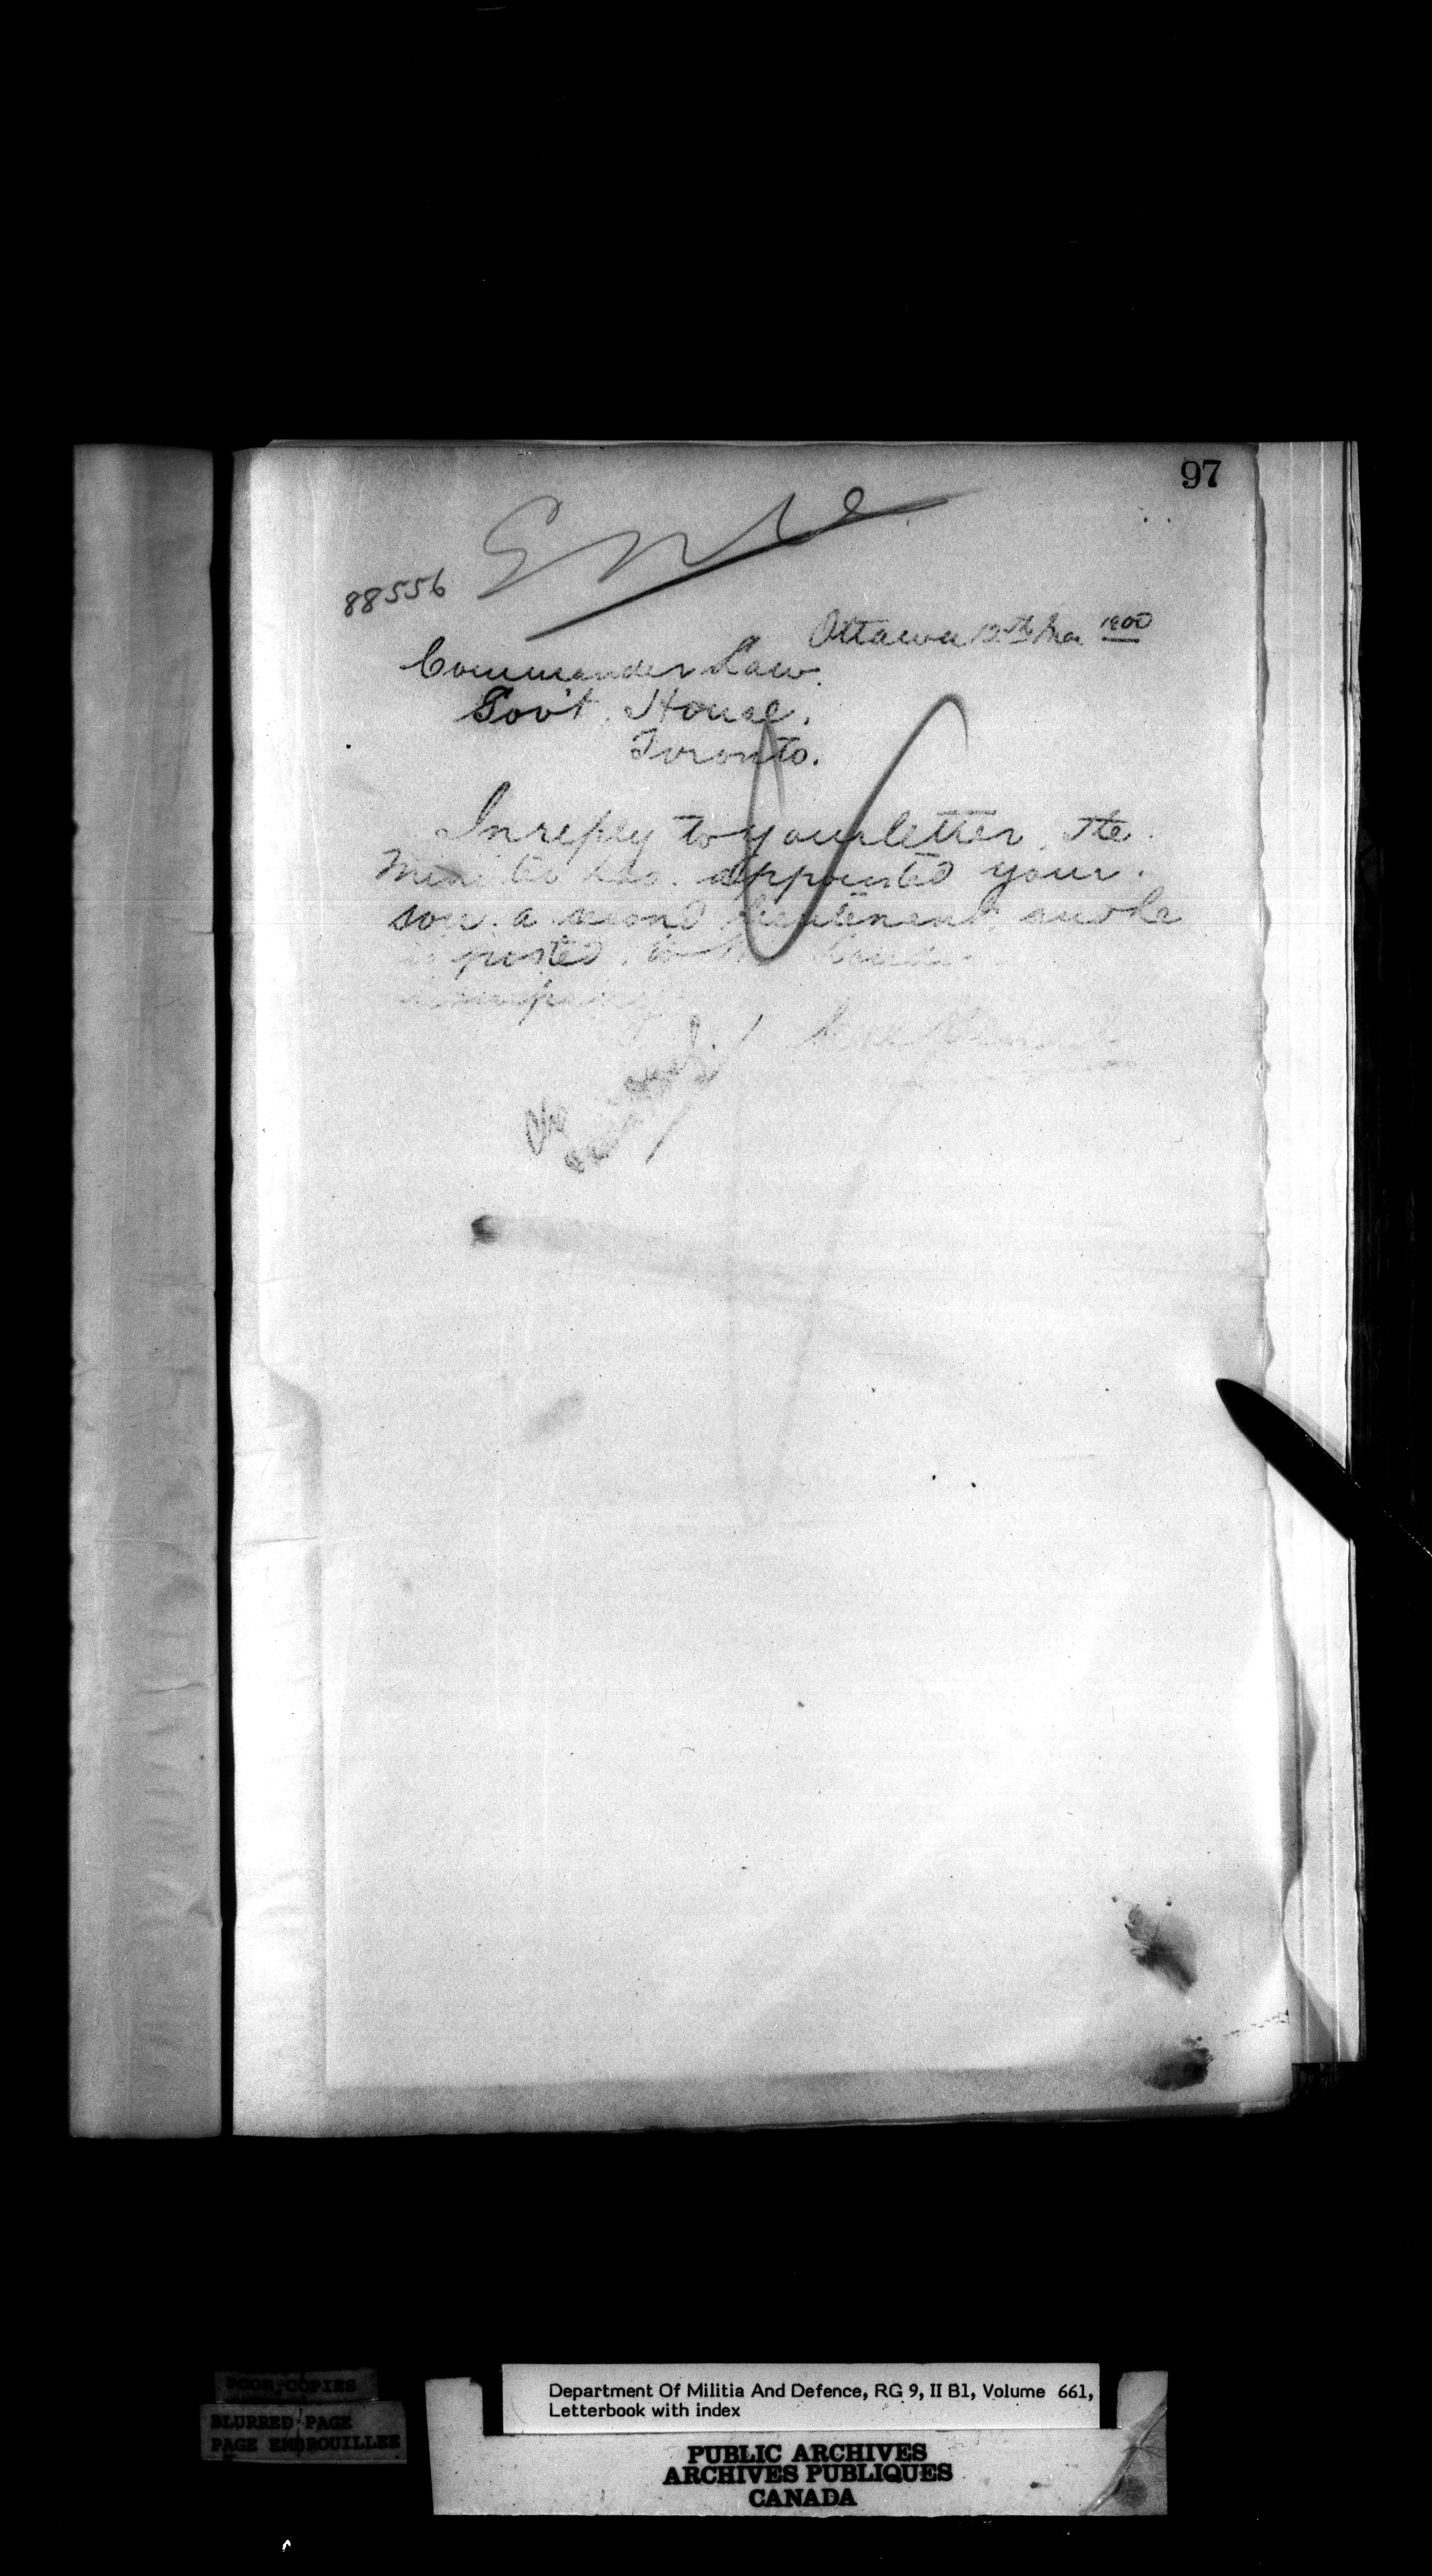 97
88556
Ottawa 12th Mar 1900
Commander Law.
Gov't. House.
Toronto.
In reply to your letter, the
Minister has appointed your
son a second lieutenant and he
is posted to the
company
POOR COPIES
BLURRED PAGE
PAGE EMBROUILLEE
Department Of Militia And Defence, RG 9, II B1, Volume 661,
Letterbook with index
PUBLIC ARCHIVES
ARCHIVES PUBLIQUES
CANADA